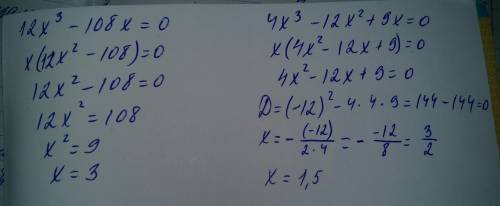 12x³ - 108x = 0
x(12x² - 108) = 0
12x² - 108 = 0
12x² = 108
x² = 9
x = 3
4x³ - 12x² + 9x = 0
x(4x² - 12x + 9) = 0
4x² - 12x + 9 = 0
D = (-12)² - 4 · 4 · 9 = 144 - 144 = 0
x = - (-12)/(2 · 4) = - -12/8 = 3/2
x = 1,5